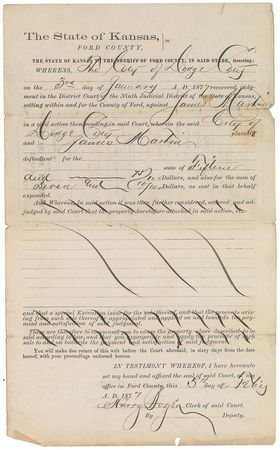 The State of Kansas, } ss.
FORD COUNTY,
THE STATE OF KANSAS TO THE SHERIFF OF FORD COUNTY, IN SAID STATE, Greeting:
WHEREAS, The City of Dodge City
on the 3rd day of January A. D. 1877 recovered judg-
ment in the District Court of the Ninth Judicial District of the State of Kansas,
setting within and for the County of Ford, against James Martin
in a civil action then pending in said Court, wherein the said City of
Dodge City plaintiff
and James Martin
defendant for the sum of Fifteen
and Dollars, and also for the sum of
Seven and Dollars, as cost in that behalf
expended.
And Whereas, In said action it was then further considered, ordered and ad-
judged by said Court that the property hereinafter attached in said action, to:
and that a special Execution issue for the sale thereof and that the proceeds aris-
ing from such sale thereof be appropriated and applied on and towards the pay-
ment and satisfaction of said judgment.
These are therefore to command you to cause the property above described to be
sold according to law, and that you appropriate and apply the proceeds of such
sale on and towards the payment and satisfaction of said judgment.
You will make due return of this writ before the Court aforesaid, in sixty days from the date
hereof, with your proceedings endorsed thereon.
IN TESTIMONY WHEREOF, I have hereunto
set my hand and affixed the seal of said Court, at my
office in Ford County, this 5th day of Feby
A. D. 1877
Harry Clerk of said Court.
By Deputy.